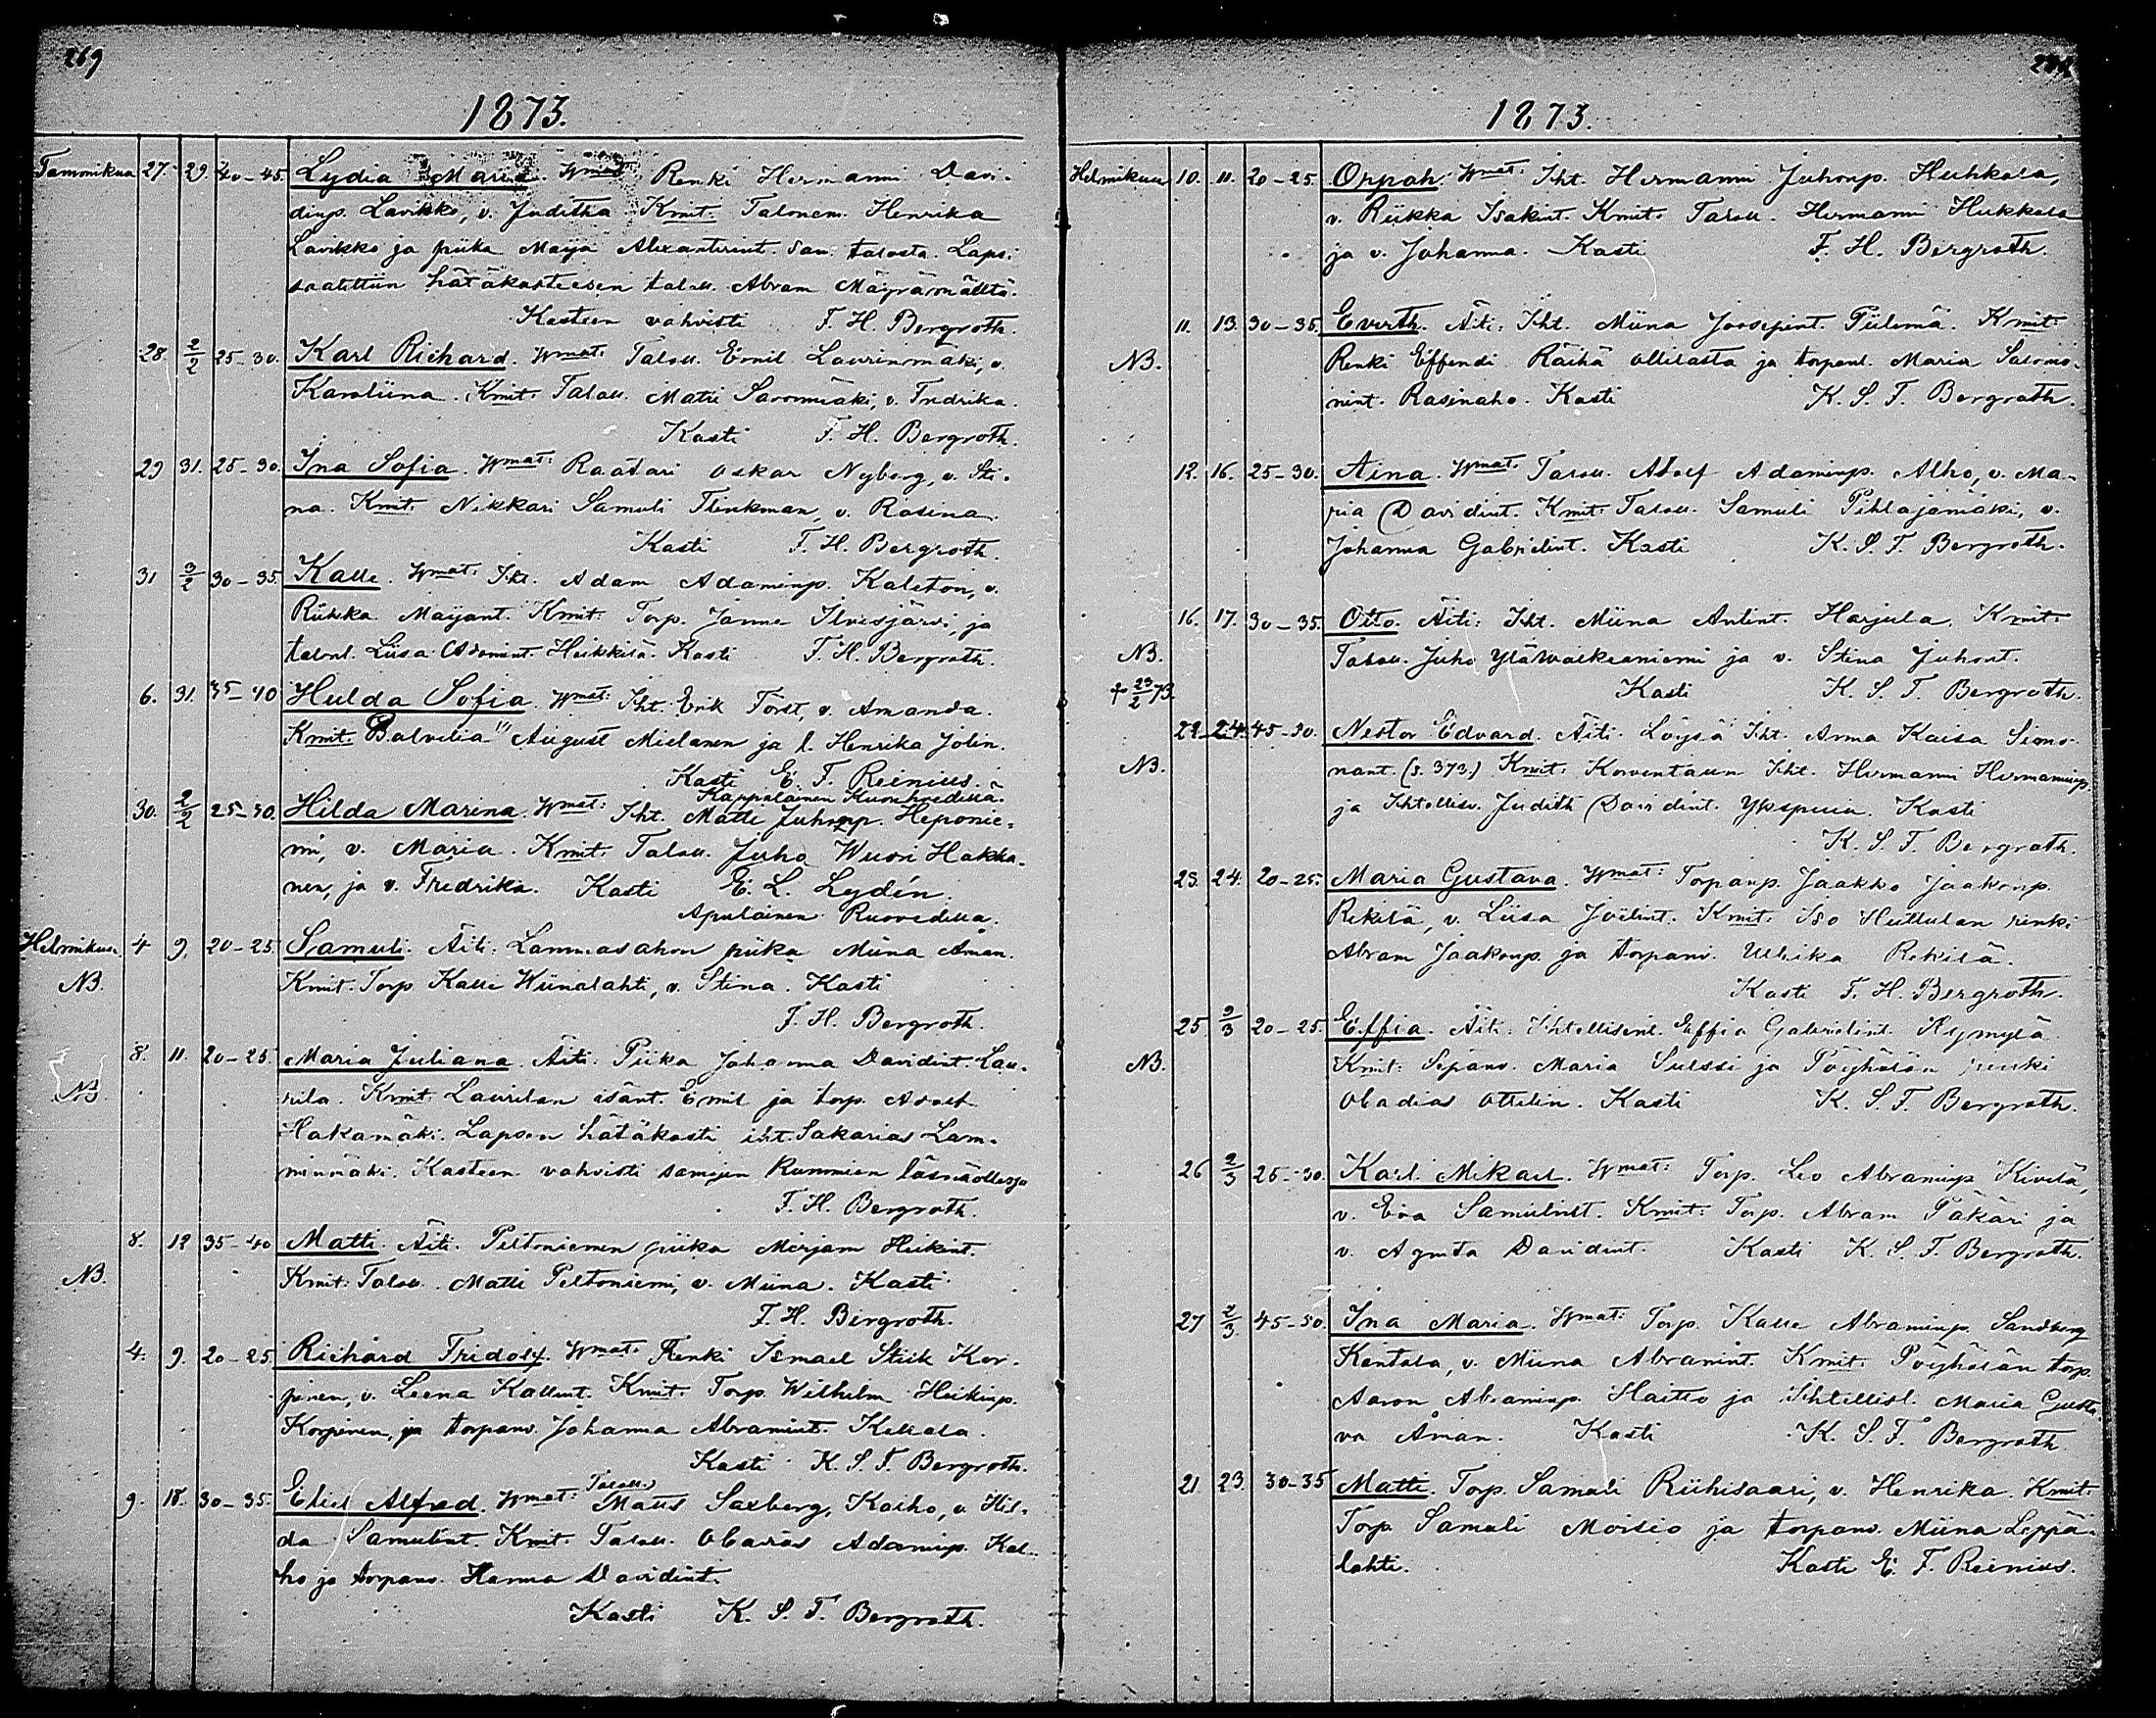 269
1873.
Tammikuu 27. 29. 40-45 Lydia Maria. Wmat: Renki Hermanni Davi-
dinp. Lavikko, v. Juditha Kmit. Talonem. Henrika
Lavikko ja piika Maija Alexanterint. sam. talosta. Lapsi
saatettiin hätäkasteesen talall. Abram Mäyrämältä.
Kasteen vahvisti F. H. Bergroth.
28. 2/2 25-30. Karl Richard. Wmat: Talall. Emil Laurinmäki, v.
Karoliina. Kmit: Talall. Matti Savonmäki, v. Fredrika.
Kasti F. H. Bergroth.
29 31. 25-30. Ina Sofia. Wmat: Raatari Oskar Nyberg, v. Sti-
na. Kmit. Nikkari Samuli Flinkman, v. Rosina
Kasti F. H. Bergroth.
31 3/2 30-35. Kalle. Wmat: Iht. Adam Adaminp. Kaleton, v.
Riikka Maijant. Kmit: Torp. Janne Ilvesjärvi, ja
talont. Liisa Adamint. Heikkilä. Kasti F. H. Bergroth.
6. 31. 35-40 Hulda Sofia. Wmat: Iht. Erik Först, v. Amanda.
Kmit. Palvelia August Mielanen ja l. Henrika Jolin.
Kasti E. F. Reinius.
Kappalainen Kuorevedellä.
30. 2/2 25-30. Hilda Marina. Wmat: Iht. Matti Juhonp. Heponie-
mi, v. Maria. Kmit. Talall. Juho Wuori Hakka-
nen, ja v. Fredrika. Kasti E. L. Lydén.
Apulainen Ruovedellä.
Helmikuu 4 9. 20-25. Samuli. Äiti: Lammasahon piika Miina Åman.
NB. Kmit. Torp Kalle Wiinalahti, v. Stina. Kasti
F. H. Bergroth.
8. 11. 20-25 Maria Juliana. Äiti: Piika Johanna Davidint. Lau-
NB. rila. Kmit Laurilan isänt. Emil ja torp. Adolf
Hakamäki. Lapsen hätäkasti iht. Sakarias Lam-
minmäki. Kasteen vahvisti samojen Kummien läsnäollessa
F. H. Bergroth.
8. 12 35-40 Matti. Äiti. Peltoniemen piika Mirjam Heikint.
NB. Kmit: Talall. Matti Peltoniemi, v. Miina. Kasti
F. H. Bergroth.
4. 9. 20-25 Richard Fridolf. Wmat: Renki Ismael Stiik Kor-
pinen, v. Leena Kallent. Kmit. Torp. Wilhelm Heikinp.
Korpinen, ja torpanv. Johanna Abramint. Kekkala.
Kasti K. S. F. Bergroth.
9. 18. 30-35. Eliel Alfred. Wmat: Talall. Matts Saxberg, Kaiho, v. Hil-
da Samulint. Kmit. Talall. Obadias Adaminp. Kal-
ho ja torpanv. Hanna Davidint.
Kasti K. S. F. Bergroth.
1873.
Helmikuu 10. 11. 20-25. Orpah. Wmat. Iht. Hermanni Juhonp. Huhkala,
v. Riikka Isakint. Kmit. Talall. Hermanni Huhkala
ja v. Johanna. Kasti F. H. Bergroth.
11. 13. 30-35. Everth. Äiti: Iht. Miina Joosepint. Piilemä. Kmit:
NB. Renki Effendi Räihä Ollilasta ja torpant. Maria Salomo-
nint. Rasinaho. Kasti K. S. F. Bergroth.
12. 16. 25-30. Aina. Wmat. Talall. Adolf Adaminp. Alho, v. Ma-
ria Davidint. Kmit: Talall. Samuli Pihlajamäki, v.
Johanna Gabrielint. Kasti K. S. F. Bergroth.
16. 17. 30-35. Otto. Äiti: Iht. Miina Antint. Harjula. Kmit.
NB. Talall. Juho Ylä Walkeaniemi ja v. Stina Juhont.
+ 23/2 73. Kasti K. S. F. Bergroth.
22 24. 45-50. Nestor Edvard. Äiti. Löysä Iht. Anna Kaisa Simo-
NB. nant. (s. 373.) Kmit: Korventaun Iht. Hermanni Hermanninp.
ja Ihtellisv. Judith Davidint. Kasti
K. S. F. Bergroth.
23. 24. 20-25. Maria Gustava. Wmat: Torpanp. Jaakko Jaakonp.
Rekilä, v. Liisa Joelint. Kmit: Iso Huttulan renki
Abram Jaakonp. ja torpanv. Ulrika Rekilä.
Kasti F. H. Bergroth.
25 2/3 20-25. Effia. Äiti. Ihtellisent. Effia Gabrielint. Kymylä
NB. Kmit: Sepänv. Maria Sulssi ja Pöyhölän renki
Obadias Ottelin. Kasti K. S. F. Bergroth.
26 2/3 25-30. Karl Mikael. Wmat: Torp. Leo Abraminp. Kivelä,
v. Eva Samulint. Kmit: Torp. Abram Pakari ja
v. Agneta Davidint. Kasti K. S. F. Bergroth.
27 2/3 45-50. Ina Maria. Wmat: Torp. Kalle Abraminp. Sandberg
Kantala, v. Miina Abramint. Kmit: Pöyhölän torp.
Aaron Abraminp. Haitto ja Ihtellisl. Maria Gusta-
va Åman. Kasti K. S. F. Bergroth
21 23. 30-35 Matti. Torp. Samuli Riihisaari, v. Henrika. Kmit
Torp. Samuli Moisio ja torpanv. Miina Leppä-
lahti. Kasti E. F. Reinius.